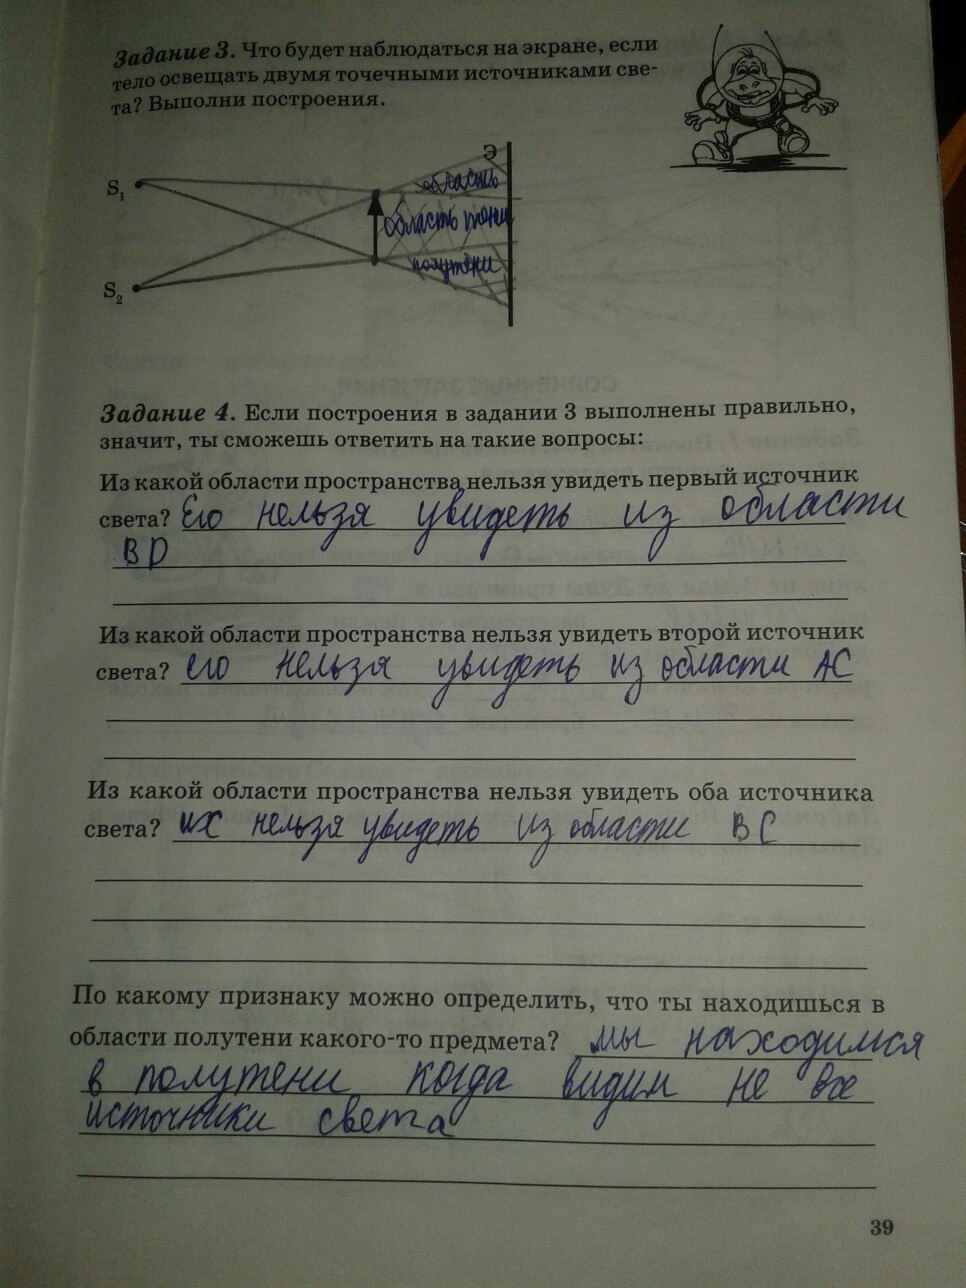 Задание 3. Что будет наблюдаться на экране, если
тело освещать двумя точечными источниками све-
та? Выполни построения.
Э
S₁
область
область тени
полутени
S₂
Задание 4. Если построения в задании 3 выполнены правильно,
значит, ты сможешь ответить на такие вопросы:
Из какой области пространства нельзя увидеть первый источник
света? Его нельзя увидеть из области
BD
Из какой области пространства нельзя увидеть второй источник
света? его нельзя увидеть из области АС
Из какой области пространства нельзя увидеть оба источника
света? их нельзя увидеть из области ВС
По какому признаку можно определить, что ты находишься в
области полутени какого-то предмета? мы находимся
в полутени когда видим не все
источники света
39